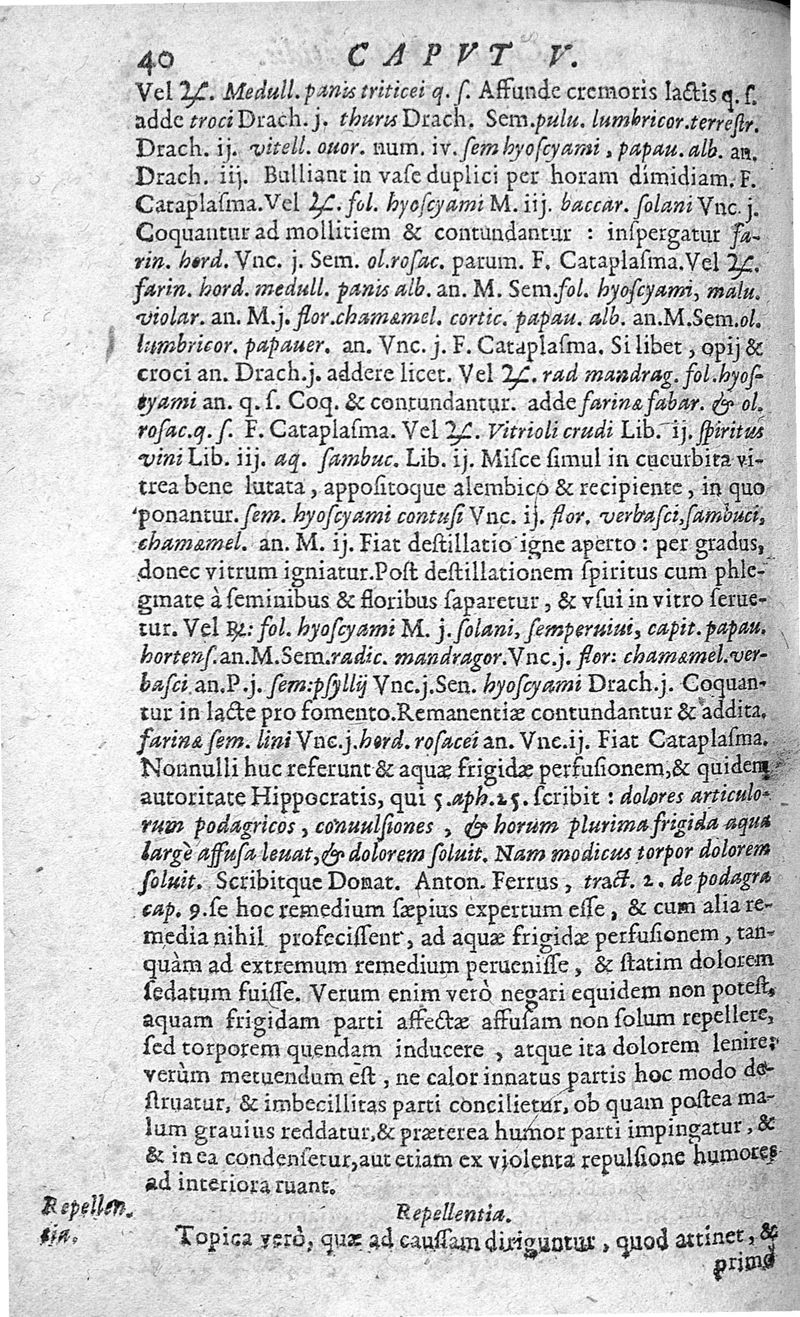 40 CAPVT V.
Vel ℞. Medull. panis triticei q. ſ. Affunde cremoris lactis q. ſ.
adde troci Drach. j. thuris Drach. Sem. pulu. lumbricor. terreſtr.
Drach. ij. vitell. ouor. num. iv. ſem hyoſcyami, papau. alb. an.
Drach. iij. Bulliant in vaſe duplici per horam dimidiam. F.
Cataplaſma. Vel ℞. fol. hyoſcyami M. iij. baccar. ſolani Vnc. j.
Coquantur ad mollitiem & contundantur : inſpergatur fa-
rin. hord. Vnc. j. Sem. ol. roſac. parum. F. Cataplaſma. Vel ℞.
farin. hord. medull. panis alb. an. M. Sem. fol. hyoſcyami, malu.
violar. an. M. j. flor. chamæmel. cortic. papau. alb. an. M. Sem. ol.
lumbricor. papauer. an. Vnc. j. F. Cataplaſma. Si libet, opij &
croci an. Drach. j. addere licet. Vel ℞. rad mandrag. fol. hyoſ-
cyami an. q. ſ. Coq. & contundantur. adde farinæ fabar. & ol.
roſac. q. ſ. F. Cataplaſma. Vel ℞. Vitrioli crudi Lib. ij. ſpiritus
vini Lib. iij. aq. ſambuc. Lib. ij. Miſce ſimul in cucurbita vi-
trea bene lutata, appoſitoque alembico & recipiente, in quo
ponantur. ſem. hyoſcyami contuſi Vnc. ij. flor. verbaſci, ſambuci,
chamæmel. an. M. ij. Fiat deſtillatio igne aperto : per gradus,
donec vitrum igniatur. Poſt deſtillationem ſpiritus cum phle-
gmate à ſeminibus & floribus ſaparetur, & vſui in vitro ſerue-
tur. Vel ℞: fol. hyoſcyami M. j. ſolani, ſemperuiui, capit. papau.
hortenſ. an. M. Sem. radic. mandragor. Vnc. j. flor: chamæmel. ver-
baſci an. P. j. ſem: pſyllij Vnc. j. Sen. hyoſcyami Drach. j. Coquan-
tur in lacte pro fomento. Remanentiæ contundantur & addita.
farinæ ſem. lini Vnc. j. hord. roſacei an. Vnc. ij. Fiat Cataplaſma.
Nonnulli huc referunt & aquæ frigidæ perfuſionem, & quidem
autoritate Hippocratis, qui 5. aph. 25. ſcribit : dolores articulo-
rum podagricos, conuulſiones, & horum plurima frigida aqua
largè affuſa leuat, & dolorem ſoluit. Nam modicus torpor dolorem
ſoluit. Scribitque Donat. Anton. Ferrus, tract. 2. de podagra
cap. 9. ſe hoc remedium ſæpius expertum eſſe, & cum alia re-
media nihil profeciſſent, ad aquæ frigidæ perfuſionem, tan-
quàm ad extremum remedium perueniſſe, & ſtatim dolorem
ſedatum fuiſſe. Verum enim verò negari equidem non poteſt,
aquam frigidam parti affectæ affuſam non ſolum repellere,
ſed torporem quendam inducere, atque ita dolorem lenire;
verùm metuendum eſt, ne calor innatus partis hoc modo de-
ſtruatur, & imbecillitas parti concilietur, ob quam poſtea ma-
lum grauius reddatur, & præterea humor parti impingatur, &
& in ea condenſetur, aut etiam ex violenta repulſione humores
ad interiora ruant.
Repellen-
tia.
Repellentia.
Topica verò, quæ ad cauſſam diriguntur, quod attinet, &
primò